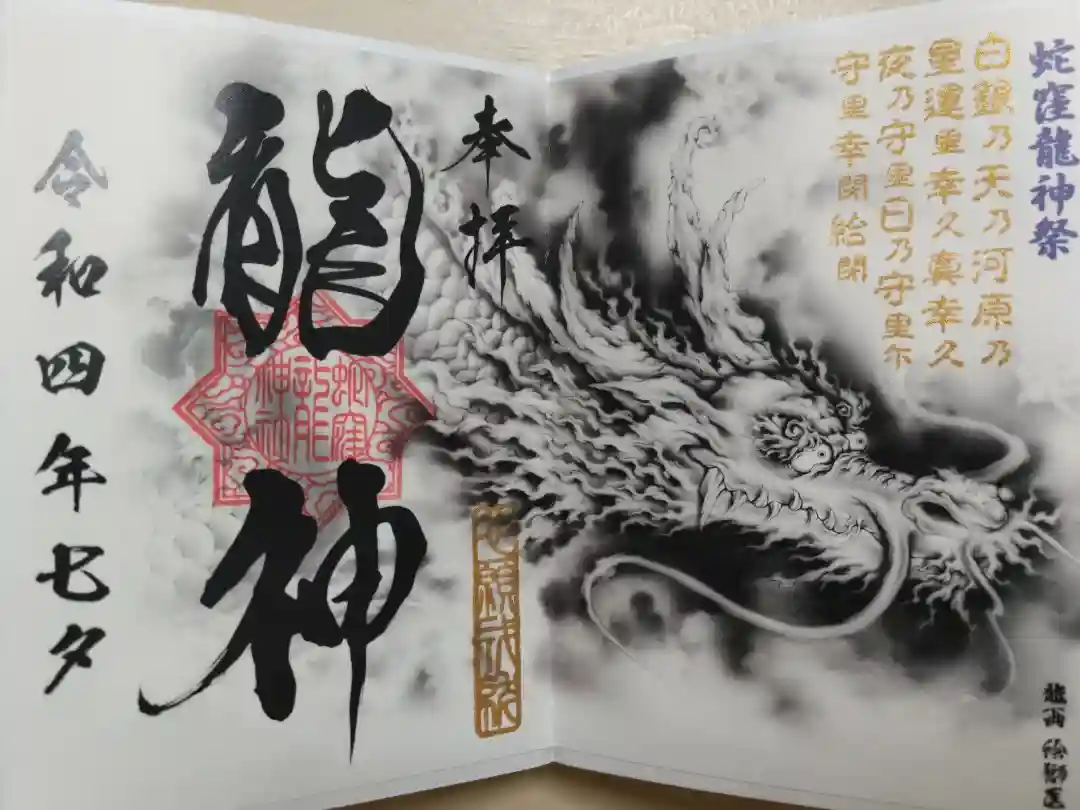 蛇窪龍神祭
白銀乃天乃河原乃
星運里幸久真幸久
夜乃守里日乃守里尓
守里幸閉給閉
奉拝
龍神
蛇窪
龍
神社
令和四年七夕